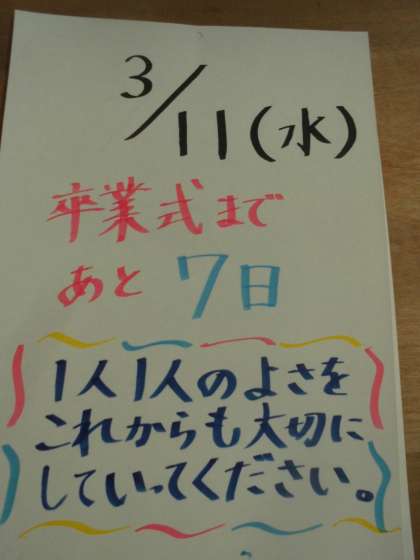 3/11(水)
卒業式まで
あと 7日
1人1人のよさを
これからも大切に
していってください。